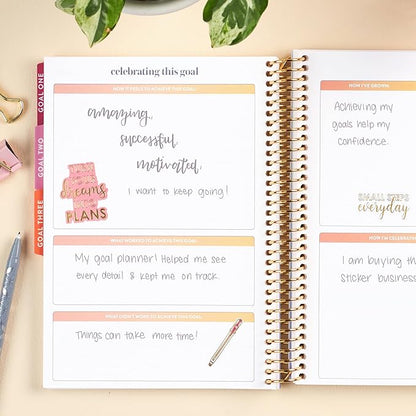 celebrating this goal
HOW IT FEELS TO ACHIEVE THIS GOAL:
amazing,
successful,
motivated,
I want to keep going!
dreams
PLANS
WHAT WORKED TO ACHIEVE THIS GOAL:
My goal planner! Helped me see
every detail & kept me on track.
WHAT DIDN'T WORK TO ACHIEVE THIS GOAL:
Things can take more time!
GOAL ONE
GOAL TWO
GOAL THREE
HOW I'VE GROWN:
Achieving my
goals help my
confidence.
SMALL STEPS
everyday
HOW I'M CELEBRATING
I am buying th
sticker business